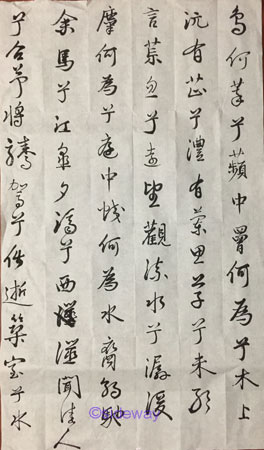 鳥何萃兮蘋中罾何為兮木上
沅有芷兮澧有蘭思公子兮未敢
言荒忽兮遠望觀流水兮潺湲
麋何為兮庭中蛟何為水裔朝馳
余馬兮江皋夕濟兮西澨聞佳人
兮召予將騰駕兮偕逝築室兮水